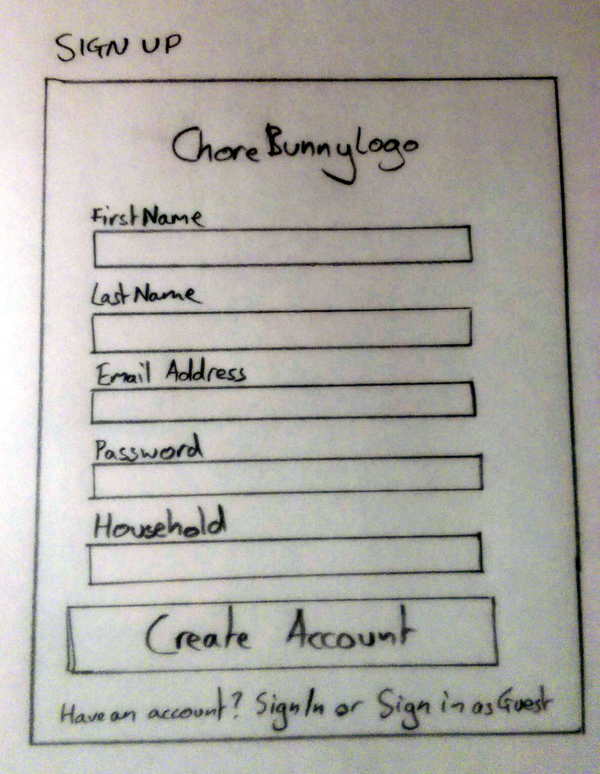 SIGN UP
Chore Bunny Logo
First Name
Last Name
Email Address
Password
Household
Create Account
Have an account? Sign In or Sign in as Guest